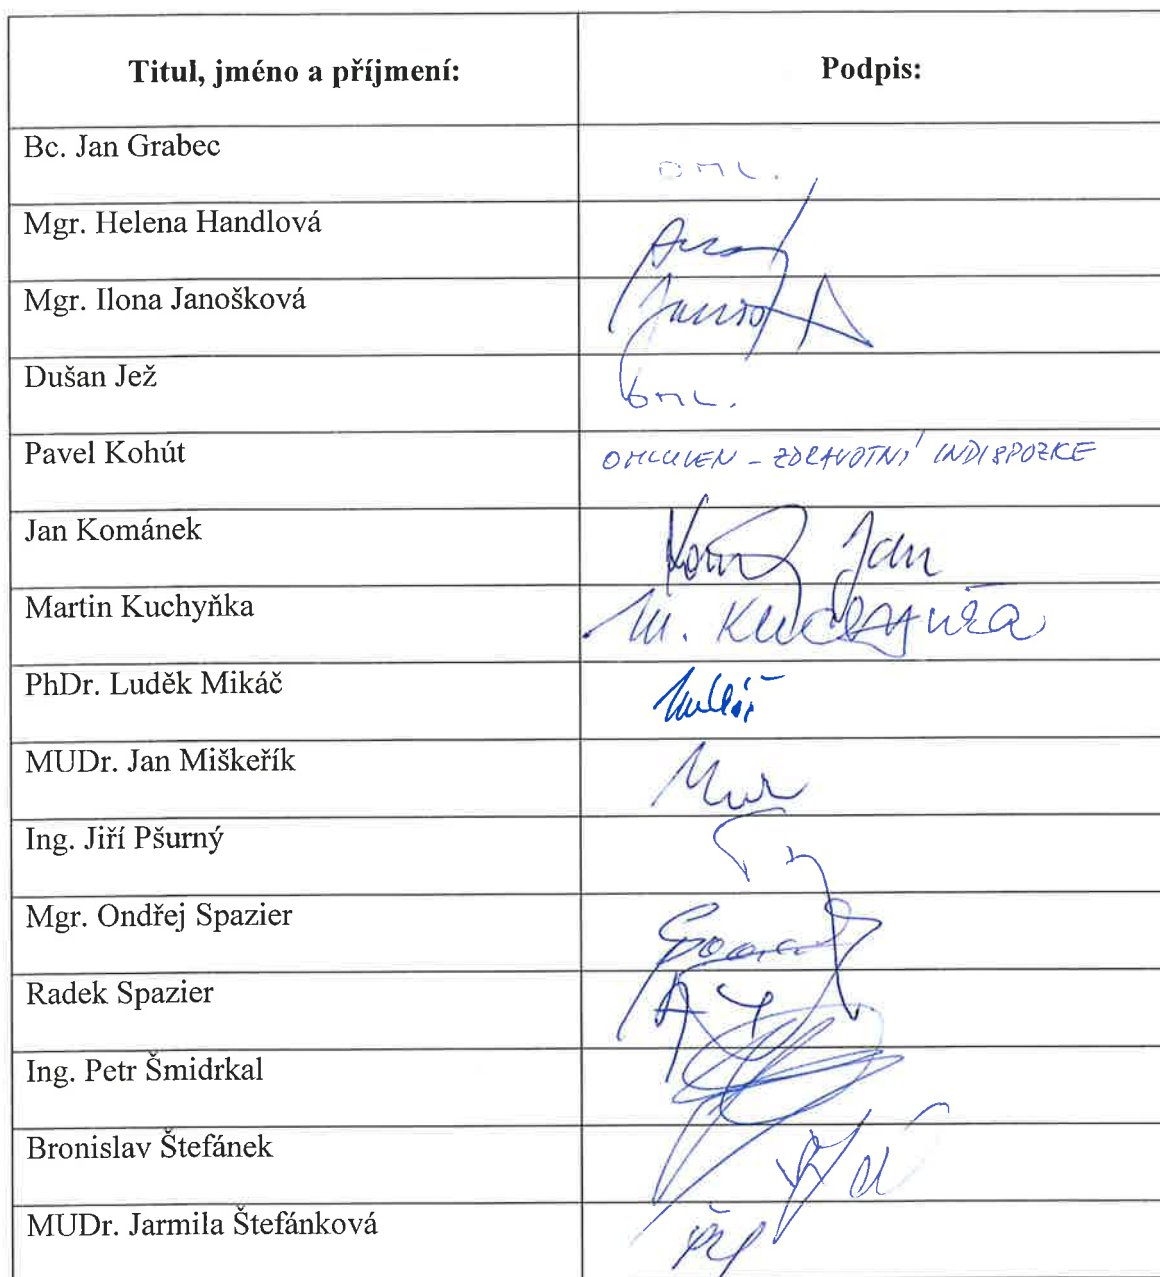 Titul, jméno a příjmení: Podpis:
Bc. Jan Grabec OML.
Mgr. Helena Handlová
Mgr. Ilona Janošková
Dušan Jež OML.
Pavel Kohút OMLUVEN - ZDRAVOTNÍ INDISPOZICE
Jan Kománek Jan
Martin Kuchyňka M. Kuchyňka
PhDr. Luděk Mikáč
MUDr. Jan Miškeřík
Ing. Jiří Pšurný
Mgr. Ondřej Spazier
Radek Spazier
Ing. Petr Šmidrkal
Bronislav Štefánek
MUDr. Jarmila Štefánková